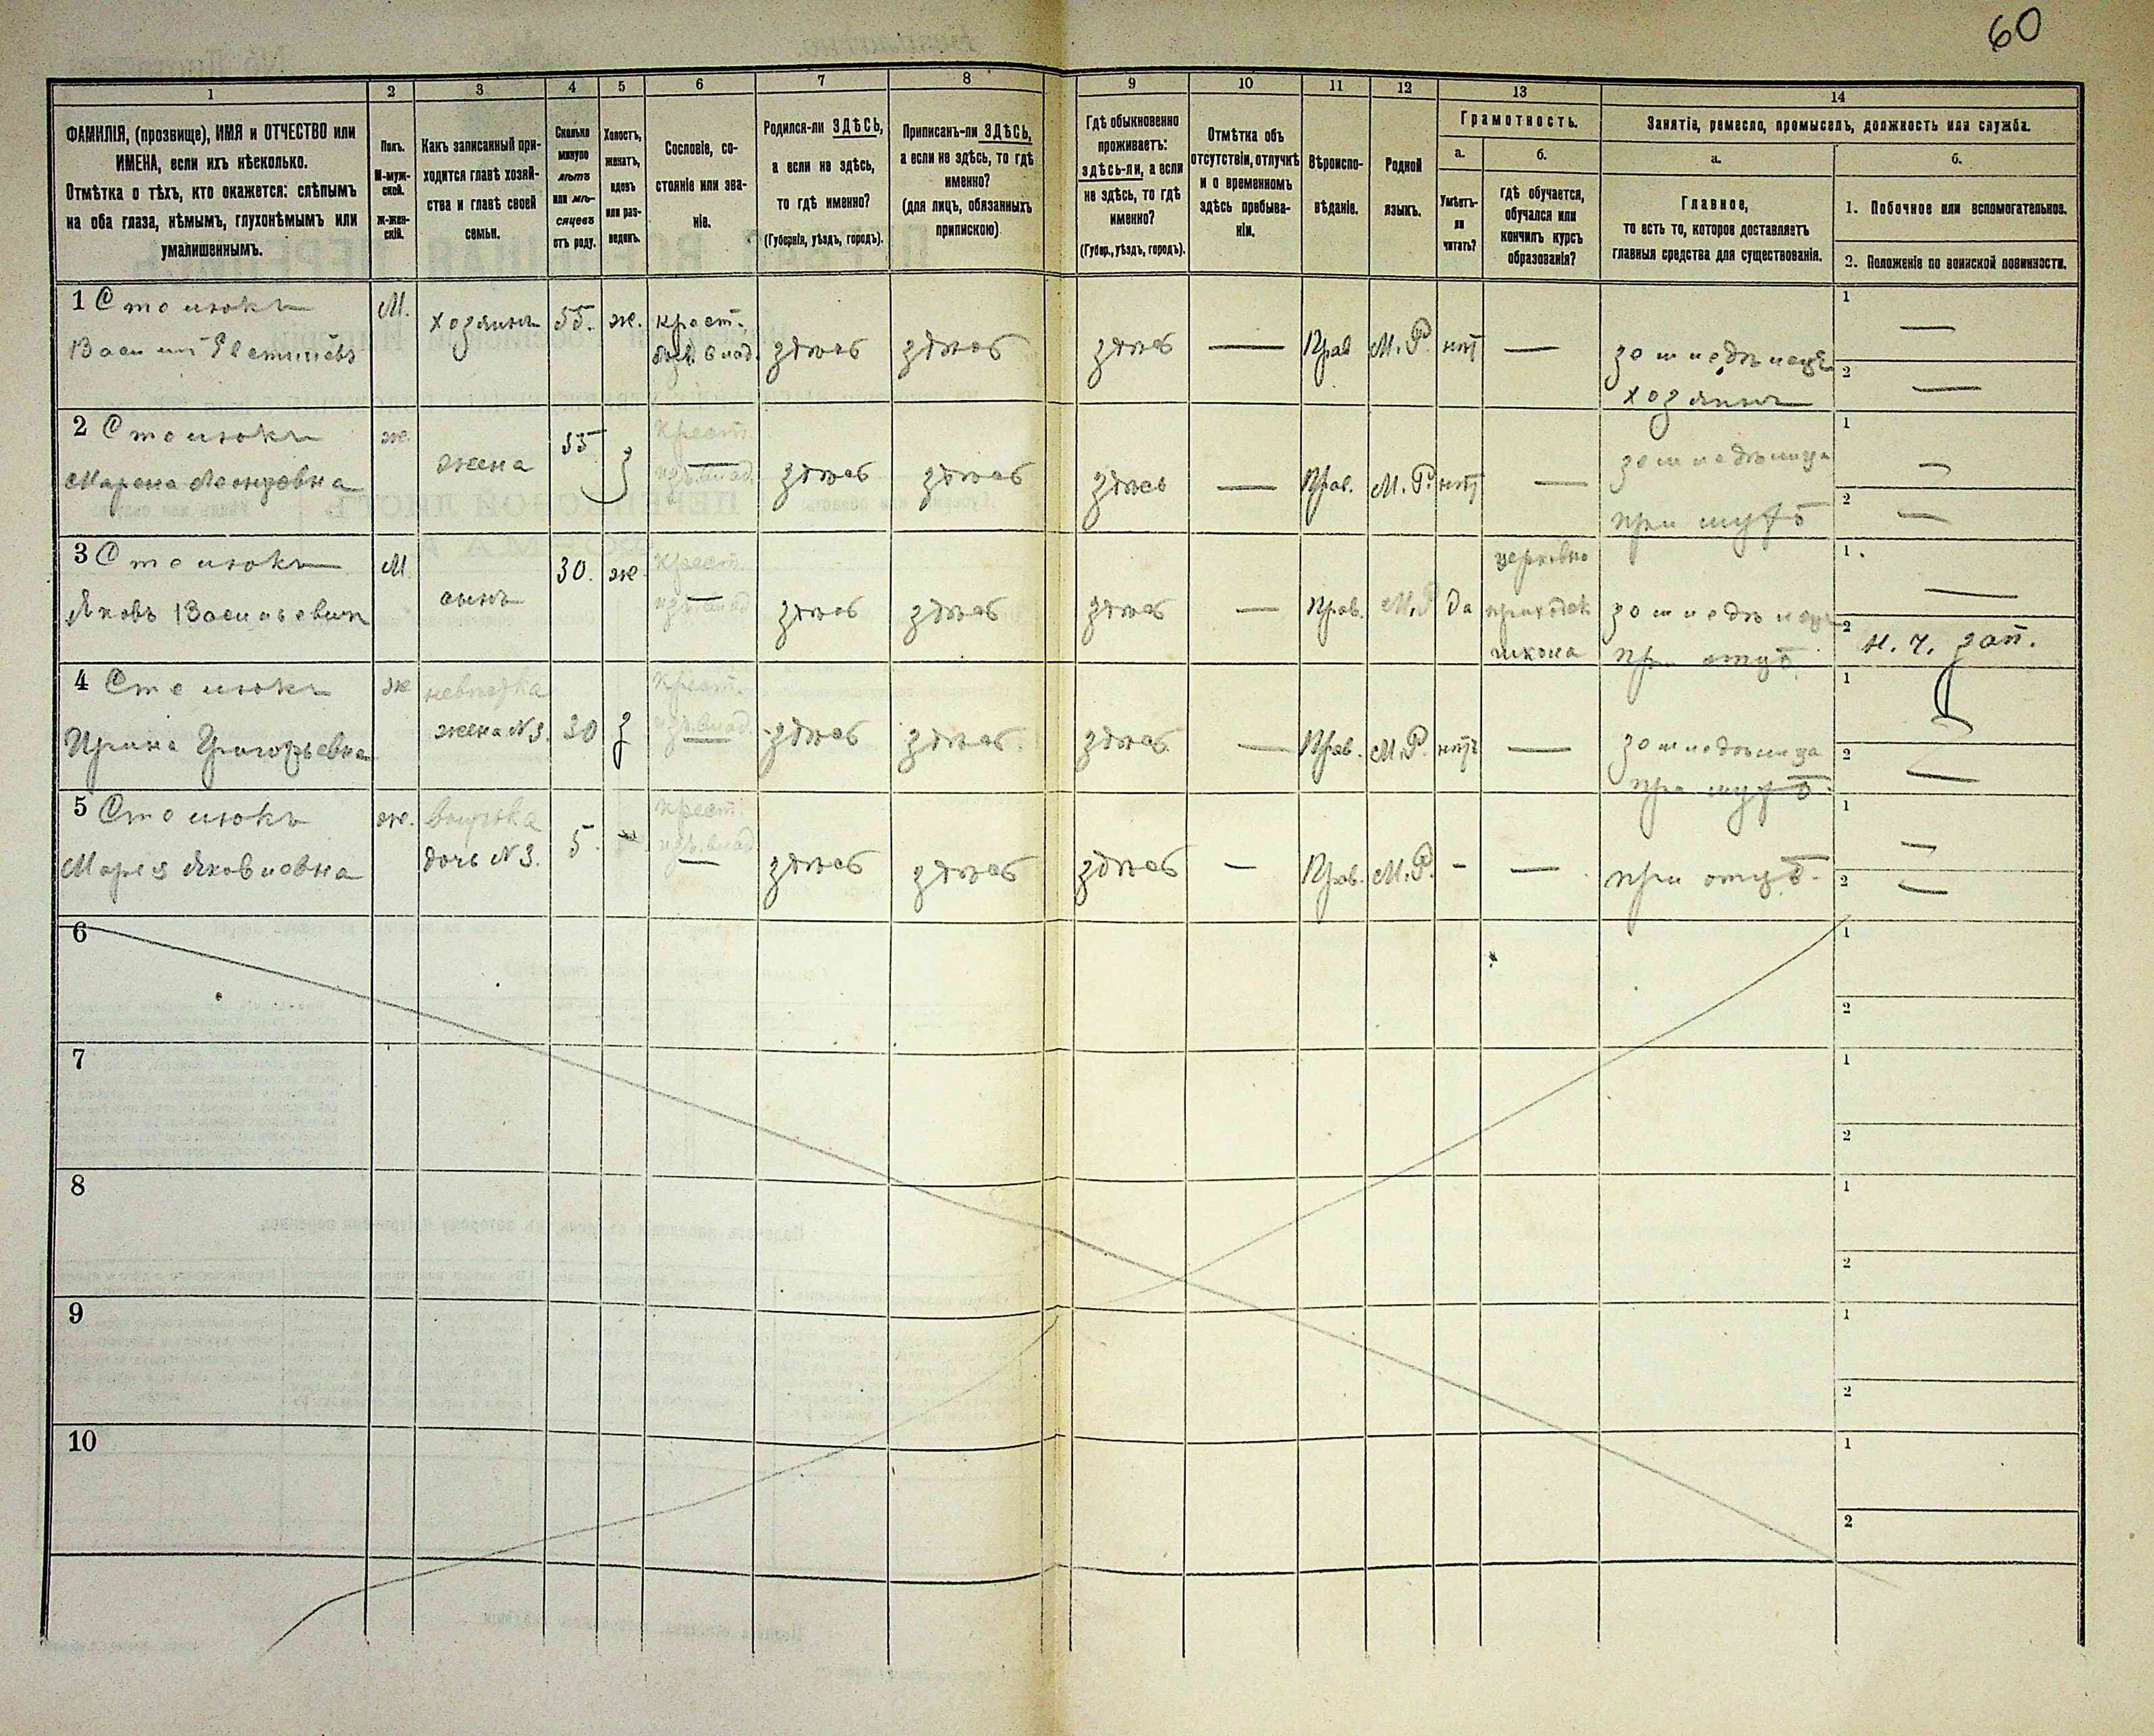 60
1 2 3 4 5 6 7 8 9 10 11 12 13 14
ФАМИЛІЯ, (прозвище), ИМЯ и ОТЧЕСТВО или
ИМЕНА, если ихъ нѣсколько.
Отмѣтка о тѣхъ, кто окажется: слѣпымъ
на оба глаза, нѣмымъ, глухонѣмымъ или
умалишеннымъ.
Полъ.
М-муж-
ской.
Ж-жен-
скій.
Какъ записанный при-
ходится главѣ хозяй-
ства и главѣ своей
семьи.
Сколько
минуло
лѣтъ
или мѣ-
сяцевъ
отъ роду.
Холостъ,
женатъ,
вдовъ
или раз-
веденъ.
Сословіе, со-
стояніе или зва-
ніе.
Родился-ли ЗДѢСЬ,
а если не здѣсь,
то гдѣ именно?
(Губернія, уѣздъ, городъ).
Приписанъ-ли ЗДѢСЬ,
а если не здѣсь, то гдѣ
именно?
(для лицъ, обязанныхъ
припискою)
Гдѣ обыкновенно
проживаетъ:
здѣсь-ли, а если
не здѣсь, то гдѣ
именно?
(Губер., уѣздъ, городъ).
Отмѣтка объ
отсутствіи, отлучкѣ
и о временномъ
здѣсь пребыва-
ніи.
Вѣроиспо-
вѣданіе.
Родной
языкъ.
Грамотность.
а.
Умѣетъ-
ли
читать?
б.
гдѣ обучается,
обучался или
кончилъ курсъ
образованія?
Занятіе, ремесло, промыселъ, должность или служба.
а.
Главное,
то есть то, которое доставляетъ
главныя средства для существованія.
б.
1. Побочное или вспомогательное.
2. Положеніе по воинской повинности.
1 Столюкъ М. хозяинъ 55. ж. крест. 1 —
здѣсь здѣсь здѣсь — Прав М.Р. нѣт —
хозяинъ 2 —
2 Столюкъ ж. жена 55 Крест. 1 —
Марена здѣсь здѣсь здѣсь — Прав. М.Р. нѣт —
при мужѣ 2 —
3 Столюкъ М. сынъ 30. ж. Крест. церковно 1 —
Яковъ Васильевич здѣсь здѣсь здѣсь — Прав. М.Р да приходск
школа при отцѣ 2 н. ч. зап.
4 Столюкъ ж невѣстка Крест. 1
Ирина Григорьевна жена №3. 30 — здѣсь здѣсь здѣсь — Прав. М.Р. нѣтъ —
при мужѣ 2 —
5 Столюкъ ж. внучка 5. Крест. 1 —
Марія Яковлевна дочь №3. — здѣсь здѣсь здѣсь — Прав. М.Р. - — при отцѣ. 2 —
6 1
2
7 1
2
8 1
2
9 1
2
10 1
2